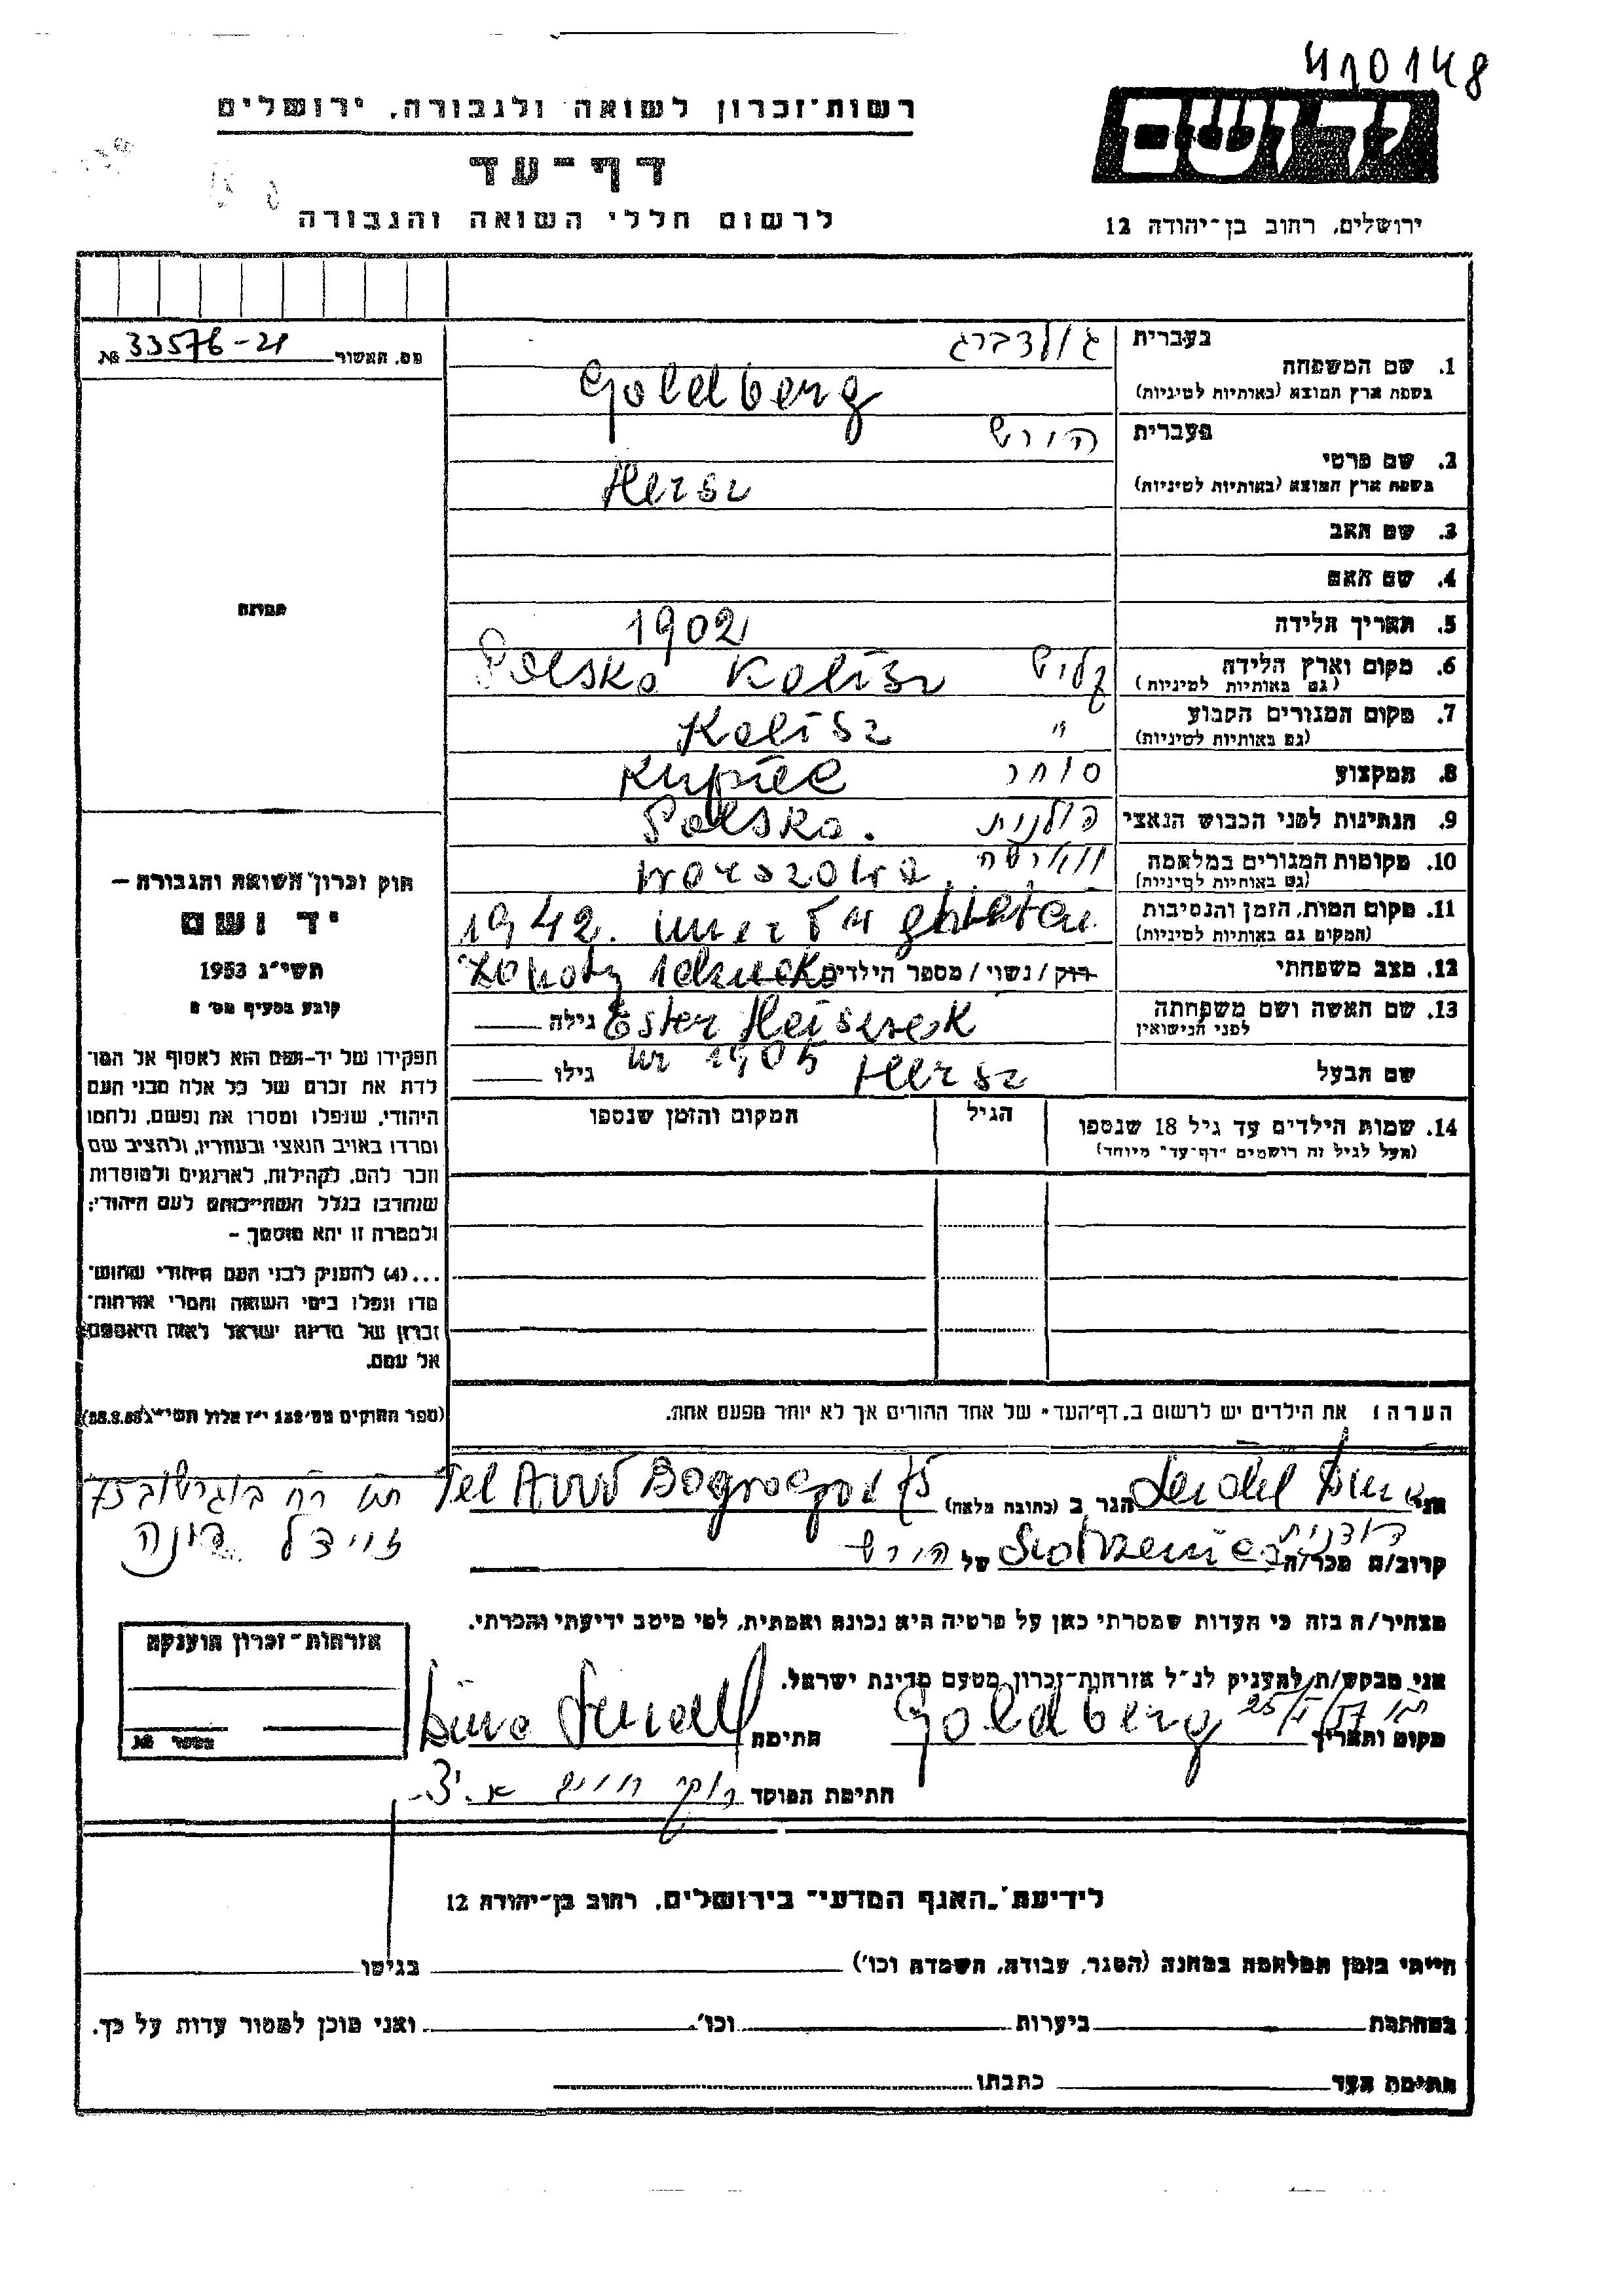 410148
רשות־זכרון לשואה ולגבורה, ירושלים
יד ושם
דף־עד
לרשום חללי השואה והגבורה
ירושלים, רחוב בן־יהודה 12
מס. האשור № 33576-21
בעברית גולדברג
1. שם המשפחה
בשפת ארץ המוצא (באותיות לטיניות) Goldberg
בעברית הירש
2. שם פרטי
בשפת ארץ המוצא (באותיות לטיניות) Hersz
3. שם האב
4. שם האם
תמונה
5. תאריך הלידה 1902
6. מקום וארץ הלידה קליש Polska Kalisz
(גם באותיות לטיניות)
7. מקום המגורים הקבוע " Kalisz
(גם באותיות לטיניות)
8. המקצוע סוחר Kupiec
9. הנתינות לפני הכבוש הנאצי פולנית Polska.
10. מקומות המגורים במלחמה ווארשה Warszawa
(גם באותיות לטיניות)
11. מקום המות, הזמן והנסיבות 1942. umarł w
(המקום גם באותיות לטיניות)
12. מצב משפחתי רוק / נשוי / מספר הילדים
13. שם האשה ושם משפחתה Ester גילה
לפני הנישואין ur 1905
שם הבעל Hersz גילו
14. שמות הילדים עד גיל 18 שנספו הגיל המקום והזמן שנספו
(מעל לגיל זה רושמים "דף־עד" מיוחד)
חוק זכרון השואה והגבורה –
יד ושם
תשי"ג 1953
קובע בסעיף מס'
תפקידו של יד־ושם הוא לאסוף אל המו־
לדת את זכרם של כל אלה מבני העם
היהודי, שנפלו ומסרו את נפשם, נלחמו
ומרדו באויב הנאצי ובעוזריו, ולהציב שם
וזכר להם, לקהילות, לארגונים ולמוסדות
שנחרבו בגלל השתייכותם לעם היהודי;
ולמטרה זו יהא מוסמך –
...(4) להעניק לבני העם היהודי שהוש־
מדו ונפלו בימי השואה והמרי אזרחות־
זכרון של מדינת ישראל לאות היאספם
אל עמם.
(ספר החוקים מס' 132 י"ז אלול תשי"ג 28.8.53)
הערה: את הילדים יש לרשום ב"דף־העד" של אחד ההורים אך לא יותר מפעם אחת.
אני הגר ב (כתובת מלאה) Tel Aviv 75 רח בוגרשוב 75
זיידל דינה
קרוב/ה מכר/ה דודנית של הירש
מצהיר/ה בזה כי העדות שמסרתי כאן על פרטיה היא נכונה ואמתית, לפי מיטב ידיעתי והכרתי.
אני מבקש/ת להעניק לנ"ל אזרחות־זכרון מטעם מדינת ישראל.
מקום ותאריך Goldberg חתימה
חתימת המוסד
אזרחות־זכרון הוענקה
מספר №
לידיעת "האגף המדעי" בירושלים, רחוב בן־יהודה 12
הייתי בזמן המלחמה במחנה (הסגר, עבודה, השמדה וכו') בגיטו
במחתרת ביערות וכו'. ואני מוכן למסור עדות על כך.
חתימת העד כתבתו